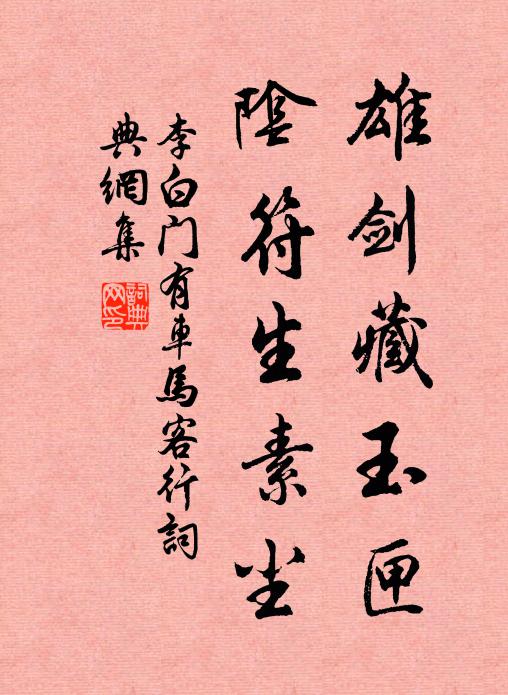 雄剑藏玉匣
陰符生素尘
李白门有車馬客行詞
典網集
詞典網印